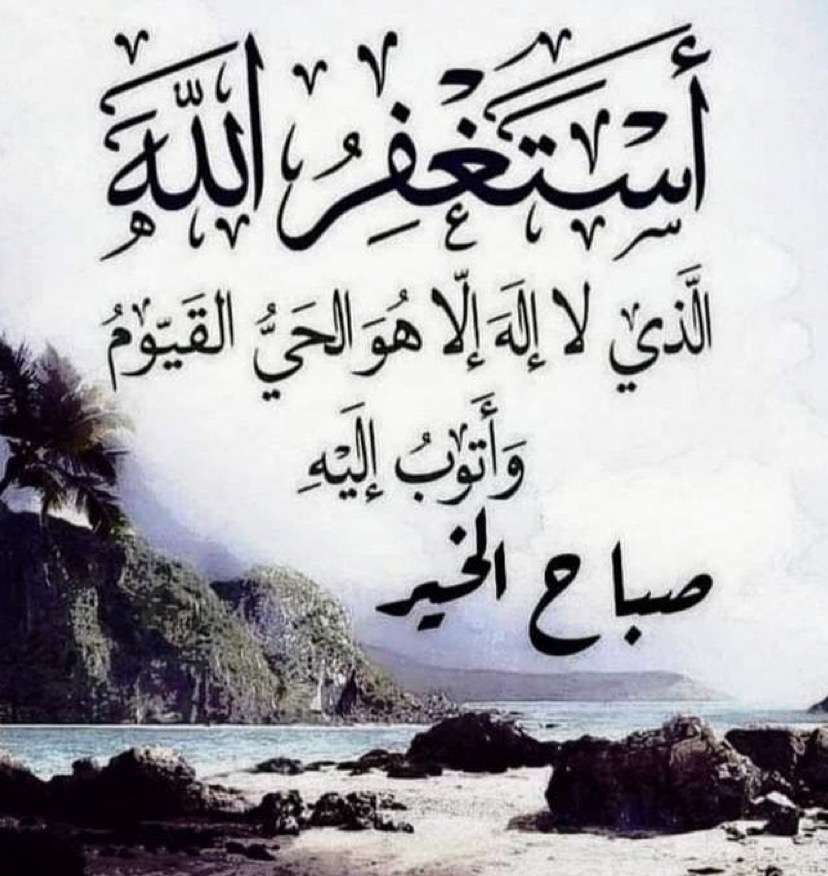 أَسْتَغْفِرُ اللَّهَ
الَّذِي لا إِلَهَ إِلّا هُوَ الحَيُّ القَيّومُ
وَأَتوبُ إِلَيْهِ
صباح الخير